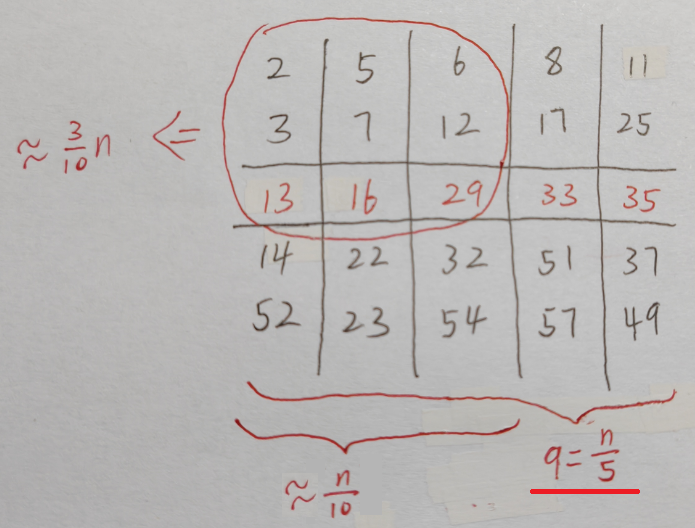 2 5 6 8 11
≈ 3/10 n <= 3 7 12 17 25
13 16 29 33 35
14 22 32 51 37
52 23 54 57 49
q = n/5
≈ n/10